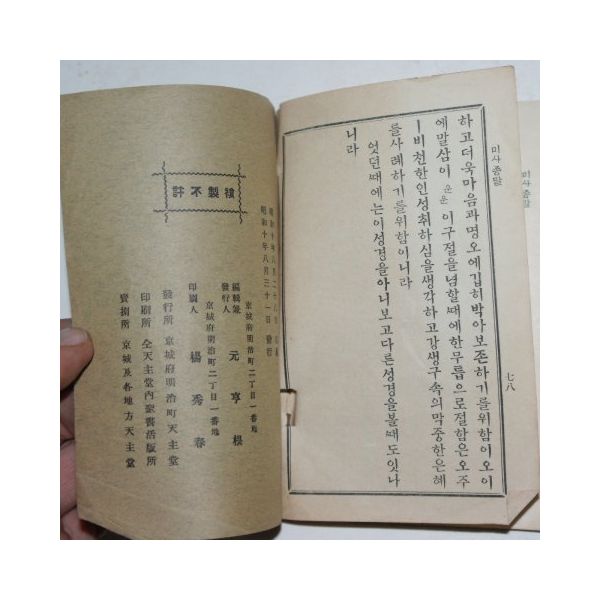 미사종말
하고더욱마음과명오에깁히박아보존하기를위함이오이
에말삼이 운운 이구절을념할때에한무릅으로절함은오주
ㅣ비천한인성취하심을생각하고강생구속의막중한은혜
를사례하기를위함이니라
엇던때에는이성경을아니보고다른성경을볼때도잇나
니라
七八
미사종말
複製不許
昭和十年八月二十八日
昭和十年八月三十一日 發行
京城府明治町二丁目一番地
編輯兼
發行人 元亨根
京城府明治町二丁目一番地
印刷人 楊秀春
發行所 京城府明治町天主堂
印刷所 仝天主堂內聖書活版所
賣捌所 京城及各地方天主堂